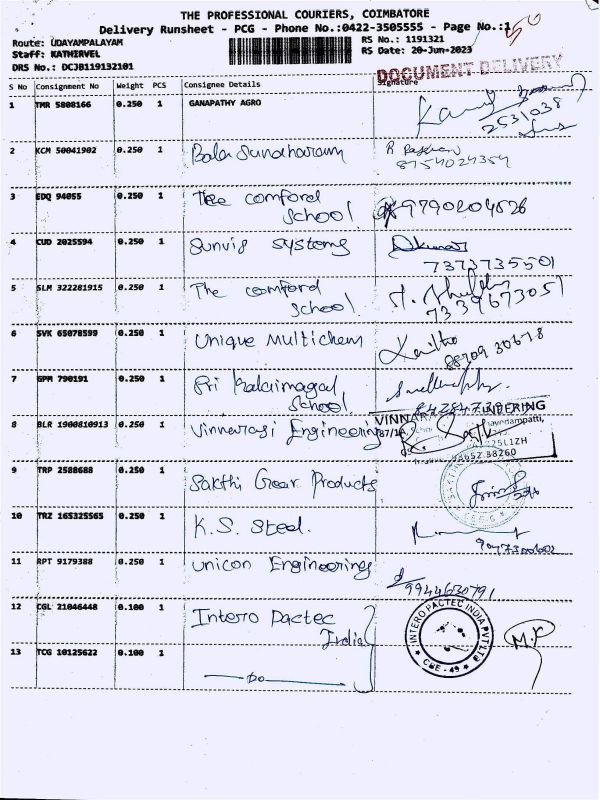 THE PROFESSIONAL COURIERS, COIMBATORE
Delivery Runsheet - PCG - Phone No.:0422-3505555 - Page No.:1
Route: UDAYAMPALAYAM
RS No.: 1191321
Staff: KATHIRVEL
RS Date: 20-Jun-2023
DRS No.: DCJB119132101
DOCUMENT DELIVERY
S No Consignment No Weight PCS Consignee Details Signature
1 TMR 5808166 0.250 1 GANAPATHY AGRO
2531038
2 KCM 50041902 0.250 1 Bala Sundharam
8754024354
3 EDQ 94055 0.250 1 The comford
school 9790204526
4 CUD 2025594 0.250 1 Sunvig systems
7373735501
5 SLM 322281915 0.250 1 The comford
school. 7339673051
6 SVK 65078599 0.250 1 Unique Multichem
7 GPM 790191 0.250 1 Sri Kalaimagal
School.
8 BLR 1900810913 0.250 1 Vinnarasi Engineering
9 TRP 2588688 0.250 1 Sakthi Gear Products
10 TRZ 165325565 0.250 1 K.S. Steel.
11 RPT 9179388 0.250 1 Unicon Engineerings
9944630791
12 CGL 21046448 0.100 1 Intero Pactec
India
INTERO PACTEC INDIA PVT LTD
CBE - 49
M.K
13 TCG 10125622 0.100 1 Do